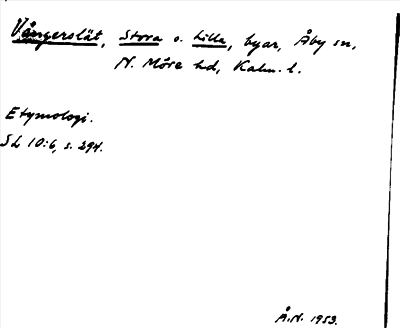 Vångerslät, Stora o. Lilla, byar, Åby sn,
N. Möre hd, Kalm. l.
Etymologi.
SL 10:6, s. 294.
Å.N. 1953.